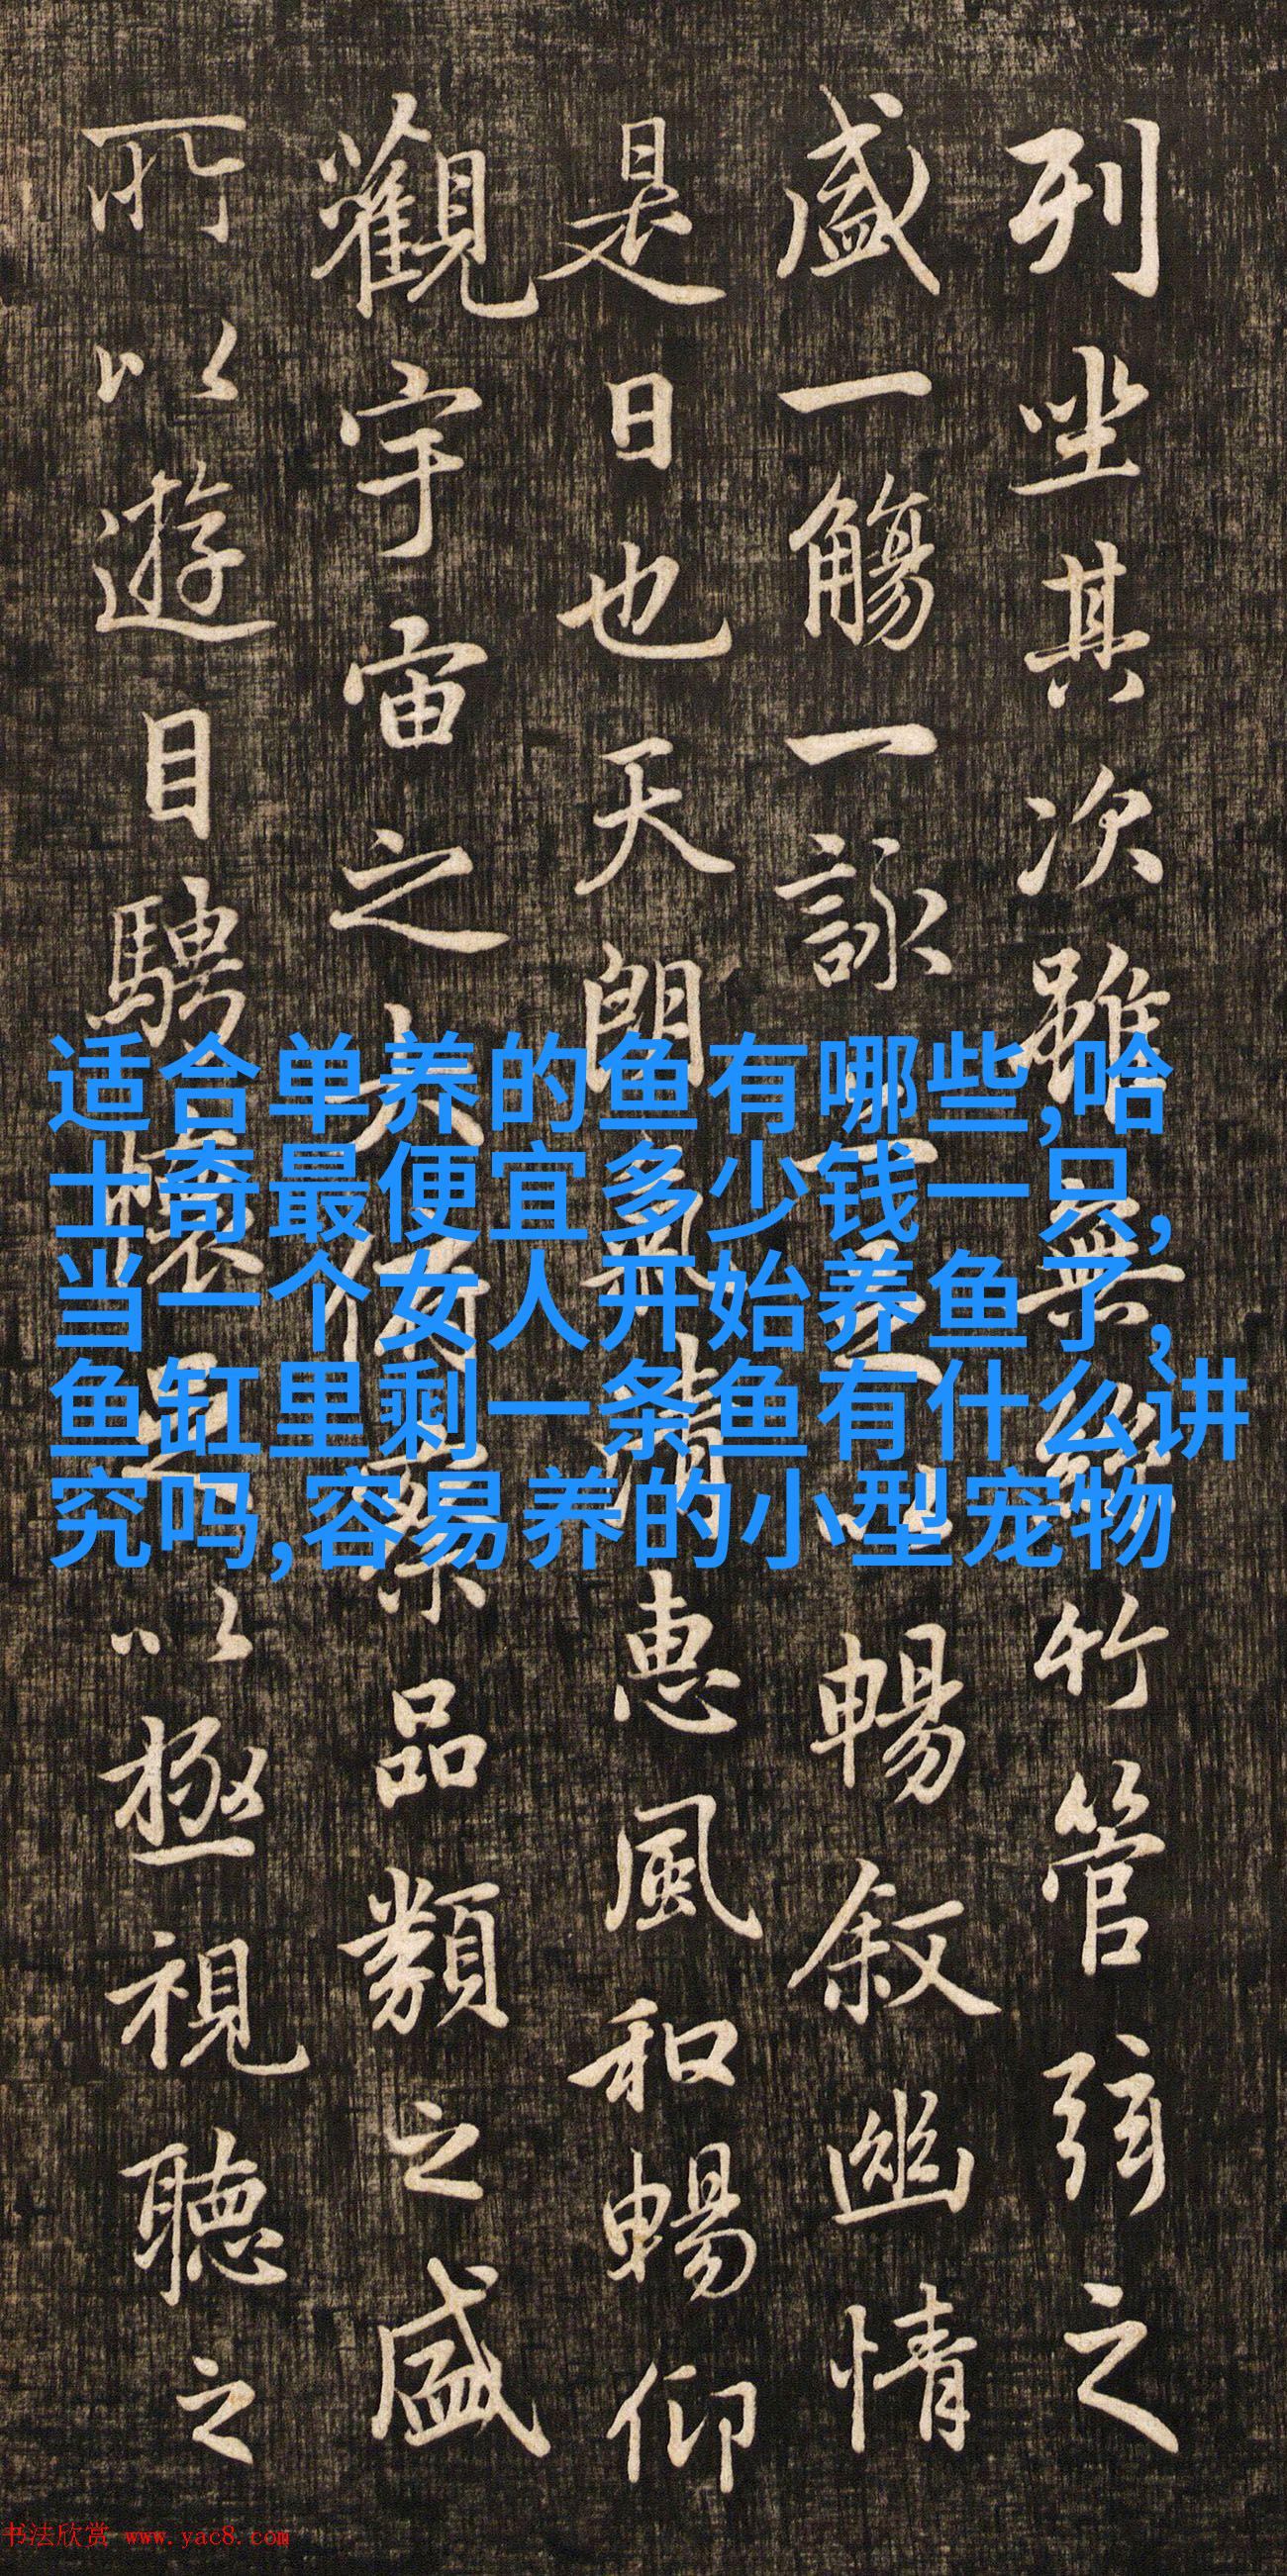 列坐其次雖無絲竹管弦之
盛一觴一詠亦足以暢叙幽情
是日也天朗氣清惠風和暢仰
觀宇宙之大俯察品類之盛
所以遊目騁懷足以極視聽之
适合单养的鱼有哪些,哈
士奇最便宜多少钱一只,
当一个女人开始养鱼了,
鱼缸里剩一条鱼有什么讲
究吗,容易养的小型宠物
书法欣赏 www.yac8.com